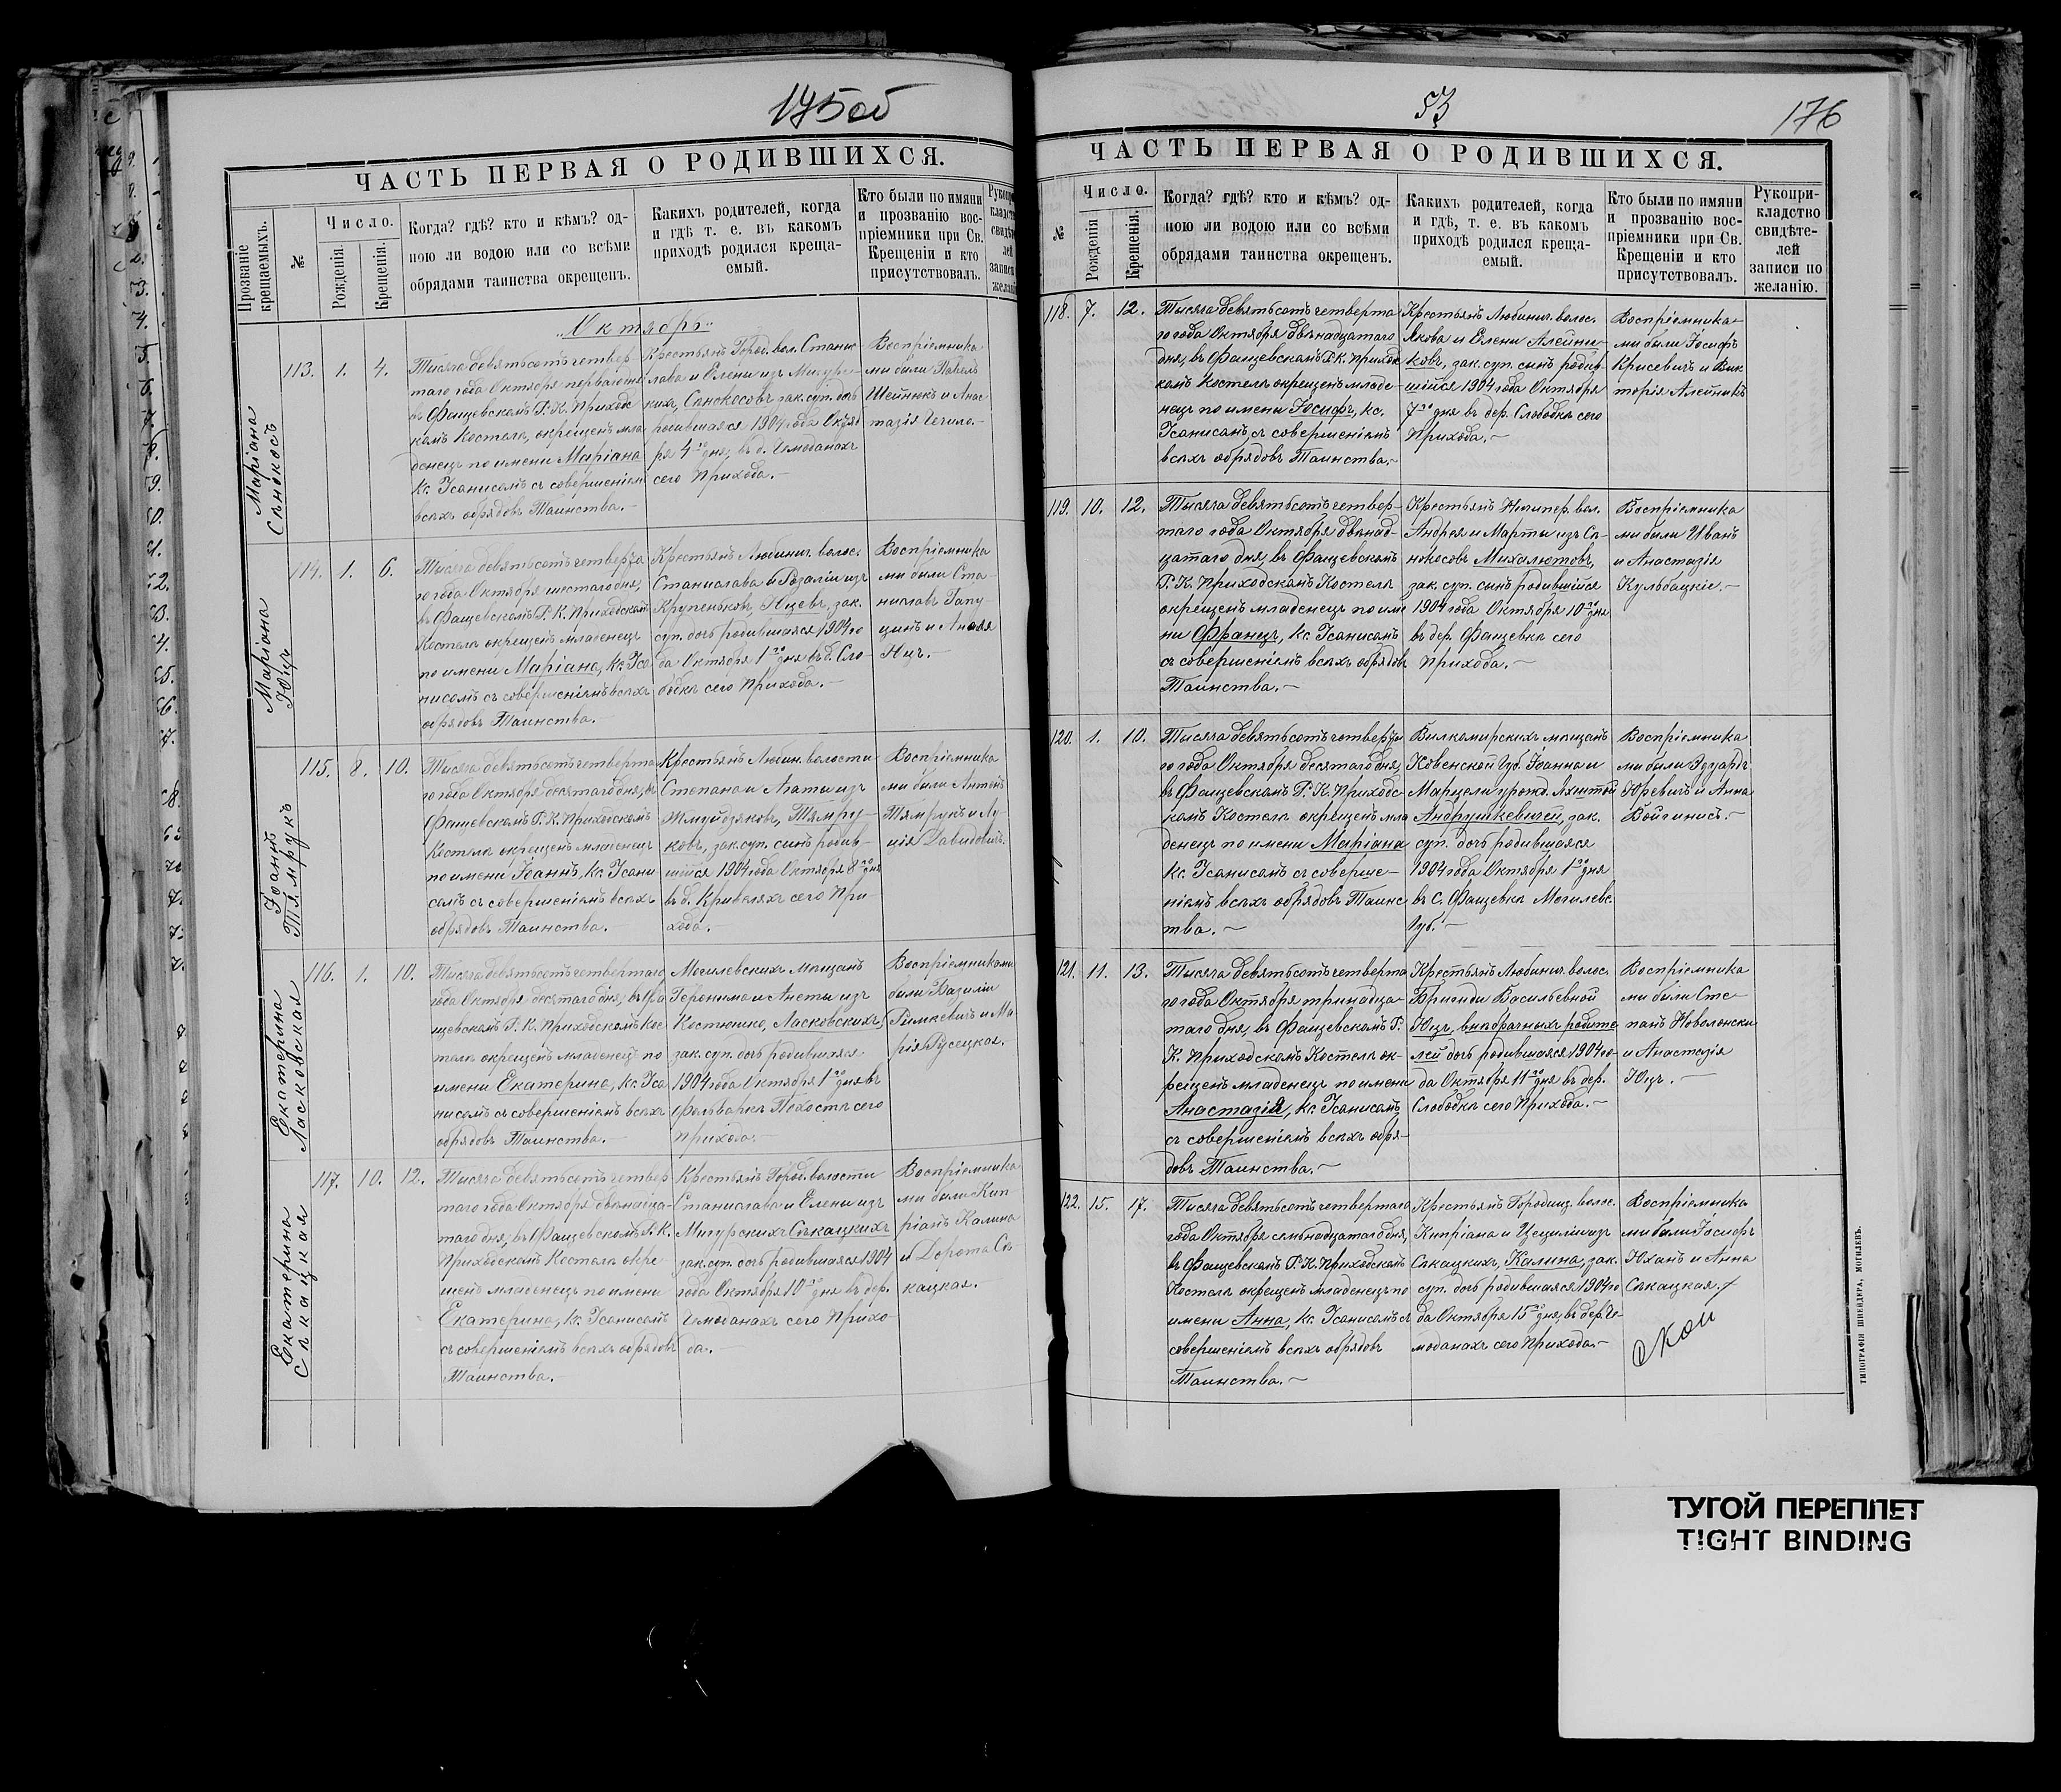 175об
ЧАСТЬ ПЕРВАЯ О РОДИВШИХСЯ.
Прозваніе крещаемыхъ.
№
Число.
Рожденія.
Крещенія.
Когда? гдѣ? кто и кѣмъ? од-
ною ли водою или со всѣми
обрядами таинства окрещенъ.
Какихъ родителей, когда
и гдѣ т. е. въ какомъ
приходѣ родился креща-
емый.
Кто были по имяни
и прозванію вос-
пріемники при Св.
Крещеніи и кто
присутствовалъ.
„Октябрь“
Маріана
Сѣнокосъ
113. 1. 4.
Тысяча девятьсотъ четвер-
таго года Октября
въ Фащевскомъ Р. К. Приходс
комъ Костелѣ, окрещенъ мла
денецъ по имени Маріана
Кс. Исансомъ съ совершеніемъ
всѣхъ обрядовъ Таинства.-
Крестьянъ Город. вол. Станис
лава и Елены изъ Мигурс-
кихъ, Сѣнокосовъ зак. суп. дочь
родившаяся 1904 года Октяб
ря 4го дня, въ д. Чемоданахъ
сего Прихода.-
Воспріемника
ми были Павелъ
Шейнюкъ и Анас
тазія Чечило.-
Маріана
Юцъ
114. 1. 6.
Тысяча девятьсотъ четверта
го года Октября шестаго дня,
въ Фащевскомъ Р. К. Приходскомъ
Костелѣ окрещенъ младенецъ
по имени Маріана, Кс. Иса
нисомъ съ совершеніемъ всѣхъ
обрядовъ Таинства.-
Крестьянъ Любинич. волос.
Станислава и Розаліи изъ
Крупеньковъ, Юцевъ, зак.
суп. дочь родившаяся 1904 го
да Октября 1го дня въ д. Сло-
бодкѣ сего Прихода.-
Воспріемника
ми были Ста-
ниславъ Гапу-
цинъ и
Юцъ.-
Іоаннъ
Тямрукъ
115. 8. 10.
Тысяча девятьсотъ четверта
го года Октября десятаго дня, въ
Фащевскомъ Р. К. Приходскомъ
Костелѣ окрещенъ младенецъ
по имени Іоаннъ, Кс. Исани
сомъ съ совершеніемъ всѣхъ
обрядовъ Таинства.
Крестьянъ Любин. волости
Степана и Агаты изъ
Жмуйдзяковъ, Тямру-
ковъ, зак. суп. сынъ родив-
шійся 1904 года Октября 8го дня
въ д. Кривеляхъ сего При-
хода.-
Воспріемника
ми были Антонъ
Тямрукъ и Лу
ція Давидовичъ.
Екатерина
Ласковская
116. 1. 10.
Тысяча девятьсотъ четвертаго
года Октября десятаго дня, въ Фа
щевскомъ Р. К. Приходскомъ Кос
телѣ окрещенъ младенецъ по
имени Екатерина, Кс. Иса
нисомъ съ совершеніемъ всѣхъ
обрядовъ Таинства.-
Могилевскихъ мѣщанъ
Геронима и Анеты изъ
Костюшко, Ласковскихъ
зак. суп. дочь родившаяся
1904 года Октября 1го дня въ
Фольваркѣ Пѣхостѣ сего
Прихода.-
Воспріемниками
были Вазилій
Римкевичъ и Ма
рія Русецкая.
Екатерина
Сѣкацкая
117. 10. 12.
Тысяча девятьсотъ четвер
таго года Октября двѣнадца-
таго дня, въ Фащевскомъ Р. К.
Приходскомъ Костелѣ окре
щенъ младенецъ по имени
Екатерина, Кс. Исанисомъ
съ совершеніемъ всѣхъ обрядовъ
Таинства.-
Крестьянъ Город. волости
Станислава и Елены изъ
Мигурскихъ Сѣкацкихъ
зак. суп. дочь родившаяся 1904
года Октября 10го дня въ дер.
Чемоданахъ сего Прихо-
да.-
Воспріемника
ми были Кип-
ріанъ Калина
и Дорота Сѣ
кацкая.
53
176
ЧАСТЬ ПЕРВАЯ О РОДИВШИХСЯ.
№
Число.
Рожденія
Крещенія.
Когда? гдѣ? кто и кѣмъ? од-
ною ли водою или со всѣми
обрядами таинства окрещенъ.
Какихъ родителей, когда
и гдѣ, т. е. въ какомъ
приходѣ родился креща-
емый.
Кто были по имяни
и прозванію вос-
пріемники при Св.
Крещеніи и кто
присутствовалъ.
Рукопри-
кладство
свидѣте-
лей
записи по
желанію.
118. 7. 12.
Тысяча девятьсотъ четверта
го года Октября двѣнадцатаго
дня, въ Фащевскомъ Р. К. Приходс
комъ Костелѣ окрещенъ младе-
нецъ по имени Іосифъ, Кс.
Исанисомъ, съ совершеніемъ
всѣхъ обрядовъ Таинства.-
Крестьянъ Любинич. волос.
Якова и Елены Алейни-
ковъ, зак. суп. сынъ родив-
шійся 1904 года Октября
7го дня въ дер. Слободкѣ сего
Прихода.-
Воспріемника-
ми были Іосифъ
Крисевичъ и Вик
торія Алейникъ
119. 10. 12.
Тысяча девятьсотъ четвер-
таго года Октября двѣнад-
цатаго дня, въ Фащевскомъ
Р. К. Приходскомъ Костелѣ
окрещенъ младенецъ по име
ни Францъ, Кс. Исанисомъ
съ совершеніемъ всѣхъ обрядовъ
Таинства.-
Крестьянъ вол.
Андрея и Марты изъ Сѣ-
нокосовъ Михалютовъ,
зак. суп. сынъ родившійся
1904 года Октября 10го дня
въ дер. Фащевкѣ сего
Прихода.-
Воспріемника
ми были Иванъ
и Анастазія
Кульбацкіе.-
120. 1. 10.
Тысяча девятьсотъ четверта
го года Октября десятаго дня,
въ Фащевскомъ Р. К. Приходс-
комъ Костелѣ окрещенъ мла
денецъ по имени Маріана
Кс. Исанисомъ съ соверше-
ніемъ всѣхъ обрядовъ Таинс
тва.-
Вилкомирскихъ мѣщанъ
Ковенской Губ. Іоанна и
Марцели урожд.
Андрушкевичей, зак.
суп. дочь родившаяся
1904 года Октября 1го дня
въ с. Фащевкѣ Могилевс.
Губ.-
Воспріемника
ми были Эдуардъ
Юревичъ и Анна
Войчинисъ.-
121. 11. 13.
Тысяча девятьсотъ четверта
го года Октября тринадца-
таго дня, въ Фащевскомъ Р.
К. Приходскомъ Костелѣ ок-
рещенъ младенецъ по имени
Анастазія, Кс. Исанисомъ
съ совершеніемъ всѣхъ обря-
довъ Таинства.-
Крестьянъ Любинич. волос.
Бригиды Васильевной
Юцъ, внѣбрачныхъ родите
лей дочь родившаяся 1904 го-
да Октября 11го дня въ дер.
Слободкѣ сего Прихода.-
Воспріемника
ми были Сте-
панъ Новолонски
и Анастазія
Юцъ.-
122. 15. 17.
Тысяча девятьсотъ четвертаго
года Октября семьнадцатаго дня,
въ Фащевскомъ Р. К. Приходскомъ
Костелѣ окрещенъ младенецъ по
имени Анна, Кс. Исанисомъ съ
совершеніемъ всѣхъ обрядовъ
Таинства.-
Крестьянъ Городищ. волос.
Кипріана и Цециліи изъ
Сѣкацкихъ, Калина, зак.
суп. дочь родившаяся 1904 го
да Октября 15го дня, въ дер. Че-
моданахъ сего Прихода.-
Воспріемника
ми были Іосифъ
Юханъ и Анна
Сѣкацкая.
ТИПОГРАФІЯ ШНЕЙДЕРА, МОГИЛЕВЪ.
ТУГОЙ ПЕРЕПЛЕТ
TIGHT BINDING